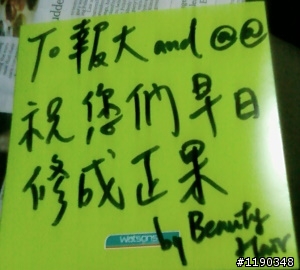 To 報大 and @@
祝您們早日
修成正果
by Beauty
Hair
watsons
#1190348